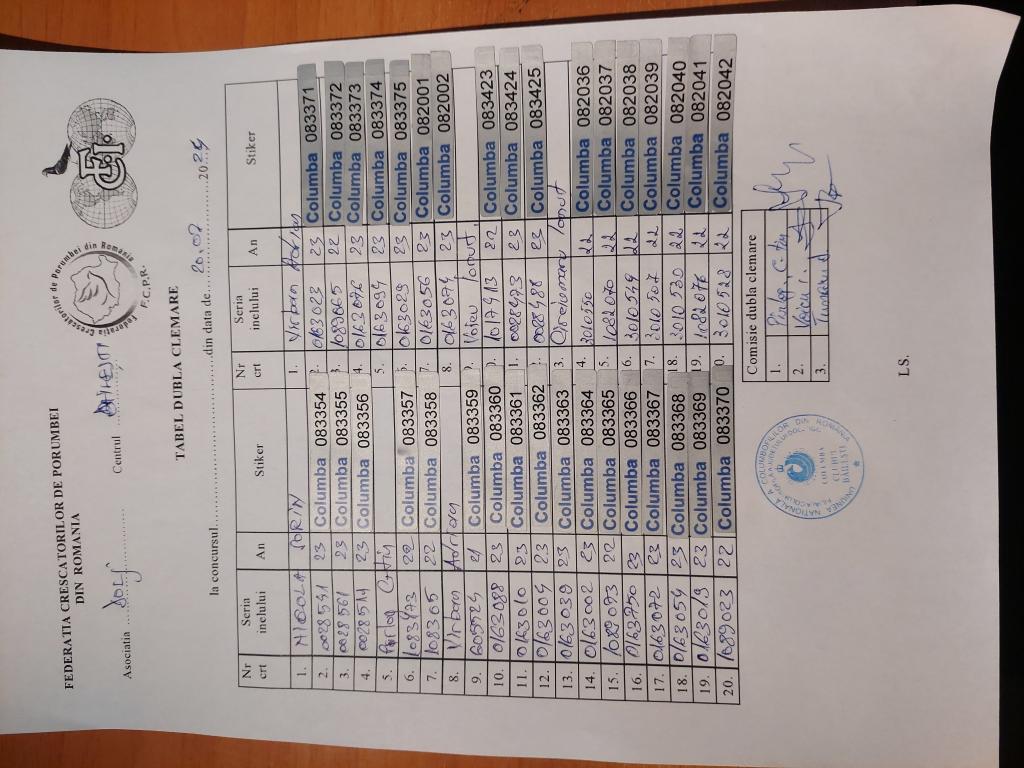 FEDERATIA CRESCATORILOR DE PORUMBEI
DIN ROMANIA
Federatia Crescatorilor de Porumbei din Romania
F.C.P.R.
F.C.I.
Asociatia DOLJ Centrul
TABEL DUBLA CLEMARE
la concursul din data de 20.07 2024
Nr crt Seria inelului An Stiker Nr crt Seria inelului An Stiker
1. NICOLA SORIN 1. Urban Adrian
2. 0028541 23 Columba 083354 2. 0163023 23 Columba 083371
3. 0028561 23 Columba 083355 3. 1089665 22 Columba 083372
4. 0028514 23 Columba 083356 4. 0163046 23 Columba 083373
5. 5. 0163094 23 Columba 083374
6. 1083973 22 Columba 083357 6. 0163029 23 Columba 083375
7. 1083105 22 Columba 083358 7. 0163056 23 Columba 082001
8. Urban Adrian 8. 0163084 23 Columba 082002
9. 605524 21 Columba 083359 9. Ionut
10. 0163088 23 Columba 083360 10. 1017413 22 Columba 083423
11. 0163010 23 Columba 083361 11. 0028493 23 Columba 083424
12. 0163004 23 Columba 083362 12. 0028486 23 Columba 083425
13. 0163039 23 Columba 083363 13. Ionut
14. 0163002 23 Columba 083364 14. 2010550 22 Columba 082036
15. 1089093 22 Columba 083365 15. 1082070 22 Columba 082037
16. 0163750 23 Columba 083366 16. 2010549 22 Columba 082038
17. 0163072 23 Columba 083367 17. 2010507 22 Columba 082039
18. 0163054 23 Columba 083368 18. 2010530 22 Columba 082040
19. 0163019 23 Columba 083369 19. 1082076 22 Columba 082041
20. 1089023 22 Columba 083370 20. 2010528 22 Columba 082042
Comisie dubla clemare
1.
2.
3.
UNIUNEA NATIONALA A COLUMBOFILILOR DIN ROMANIA
COLUMBA
CLUBUL
BAILESTI
LS.